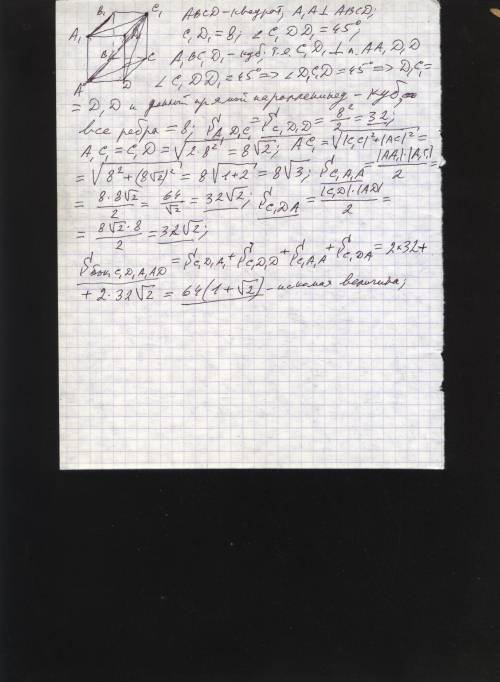 B₁ C₁ ABCD-квадрат, A₁A⊥ABCD;
A₁ D₁ C₁D₁=8; ∠C₁DD₁=45°;
B C A₁BC₁D₁-куб, т.е C₁D₁⊥п. AA₁D₁D
A D ∠C₁DD₁=45°=>∠D₁C₁D=45°=>D₁C₁=
= D₁D и данный прямой параллепипед-куб,
все ребра=8; S A₁D₁C₁ = S C₁D₁D = 8²/2 = 32;
A₁C₁=C₁D=√2·8² = 8√2; AC₁=√|C₁C|²+|AC|² =
= √8²+(8√2)² = 8√1+2 = 8√3; S C₁A₁A = |AA₁|·|A₁C₁|/2 =
= 8·8√2/2 = 64/√2 = 32√2; S C₁DA = |C₁D|·|AD|/2 =
= 8√2·8/2 = 32√2;
S бок.C₁D₁A₁AD = S C₁D₁A₁ + S C₁D₁D + S C₁A₁A + S C₁DA = 2×32+
+ 2·32√2 = 64(1+√2)-искомая величина;